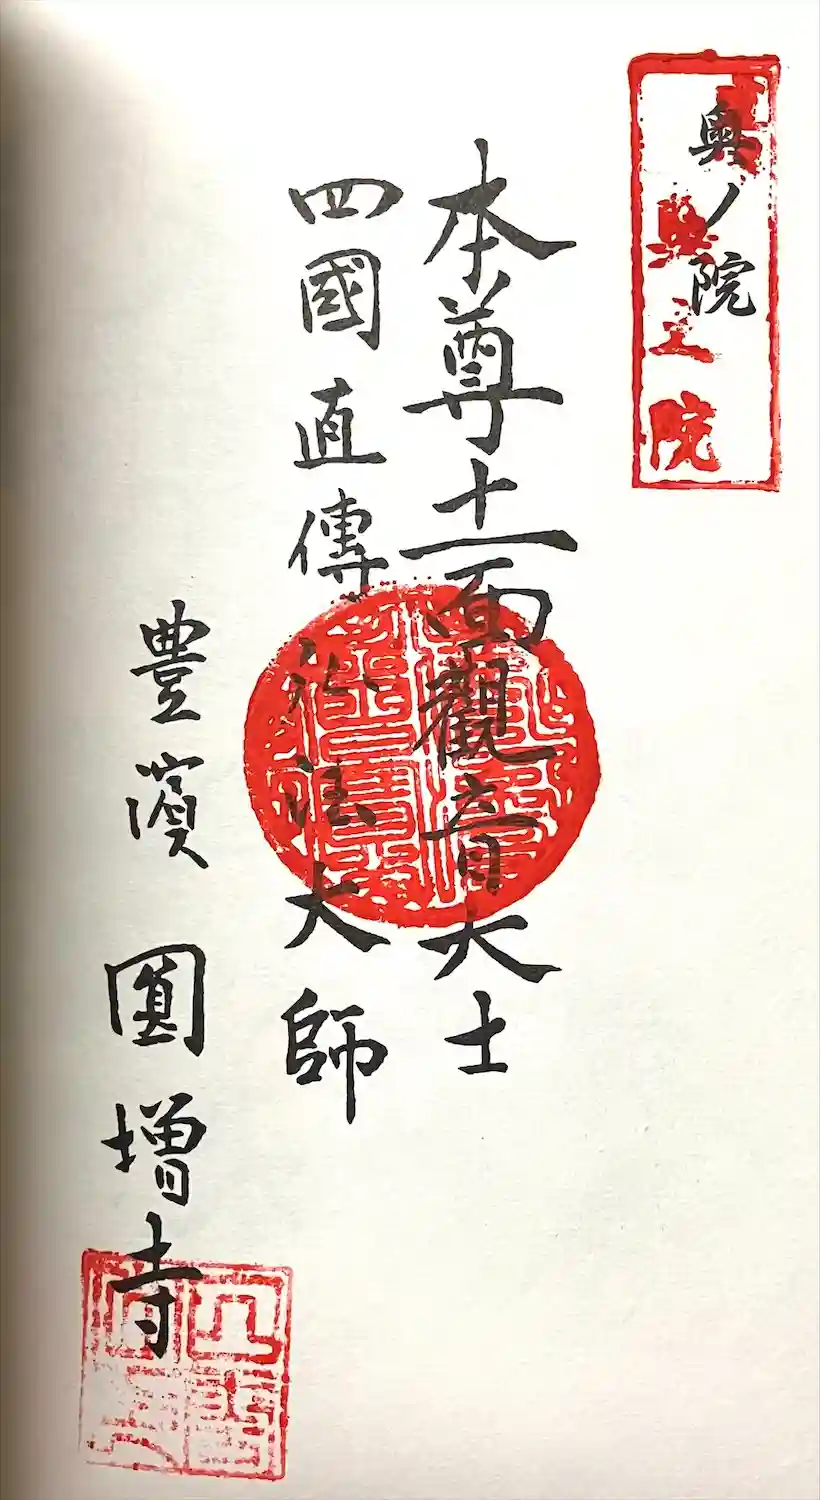 奥ノ院
奥之院
本尊十一面觀音大士
四國直傳弘法大師
豊濱 圓增寺